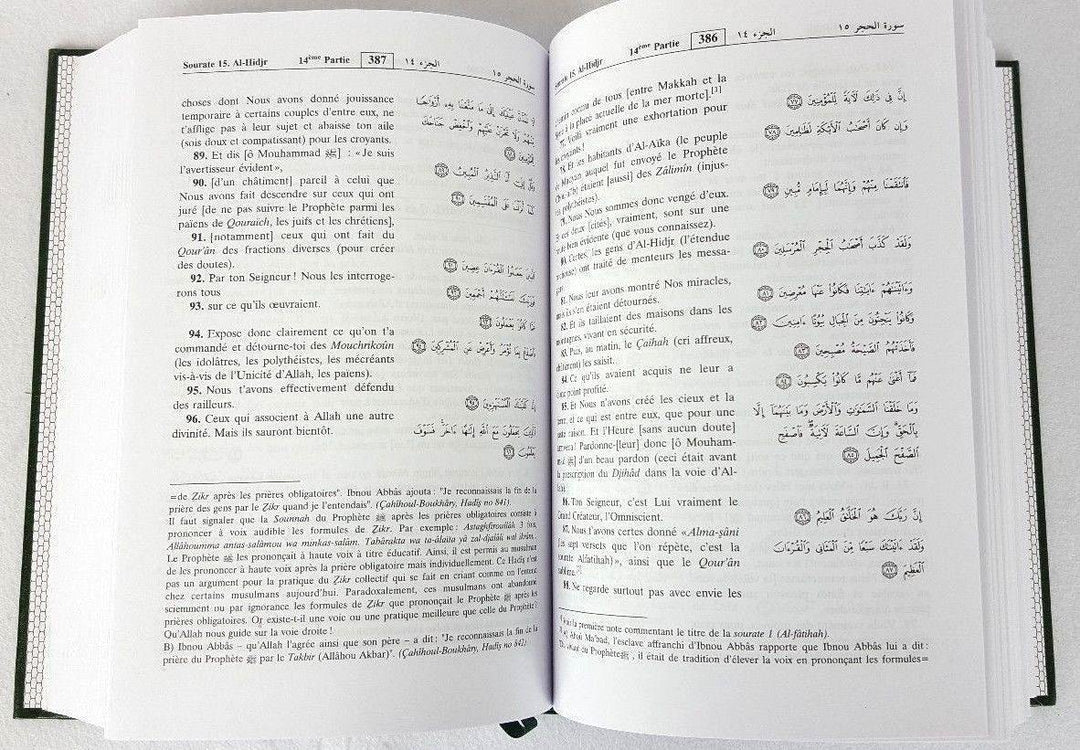 سورة الحجر ١٥
الجزء ١٤
386
14ème Partie
Sourate 15. Al-Hidjr
de tous [entre Makkah et la
à la place actuelle de la mer morte].[3]
77. Voilà vraiment une exhortation pour
78. Et les habitants d'Al-Aïka (le peuple
auquel fut envoyé le Prophète
étaient [aussi] des Zâlimîn (injus-
79. Nous Nous sommes donc vengé d'eux.
deux [cités], vraiment, sont sur une
bien évidente (que vous connaissez).
80. Certes, les gens d'Al-Hidjr (l'étendue
ont traité de menteurs les messa-
81. Nous leur avons montré Nos miracles,
mais ils s'en étaient détournés.
82. Et ils taillaient des maisons dans les
montagnes, vivant en sécurité.
83. Puis, au matin, le Çaihah (cri affreux,
les saisit.
84. Ce qu'ils avaient acquis ne leur a
point profité.
85. Et Nous n'avons créé les cieux et la
et ce qui est entre eux, que pour une
raison. Et l'Heure [sans aucun doute]
Pardonne-[leur] donc [ô Mouham-
d'un beau pardon (ceci était avant
prescription du Djihâd dans la voie d'Al-
86. Ton Seigneur, c'est Lui vraiment le
Grand Créateur, l'Omniscient.
87. Nous t'avons certes donné «Alma-sâni
sept versets que l'on répète, c'est la
Alfatihah)», ainsi que le Qour'ân
88. Ne regarde surtout pas avec envie les
إِنَّ فِي ذَٰلِكَ لَآيَةً لِّلْمُؤْمِنِينَ ٧٧
وَإِن كَانَ أَصْحَٰبُ ٱلْأَيْكَةِ لَظَٰلِمِينَ ٧٨
فَٱنتَقَمْنَا مِنْهُمْ وَإِنَّهُمَا لَبِإِمَامٍ مُّبِينٍ ٧٩
وَلَقَدْ كَذَّبَ أَصْحَٰبُ ٱلْحِجْرِ ٱلْمُرْسَلِينَ ٨٠
وَءَاتَيْنَٰهُمْ ءَايَٰتِنَا فَكَانُوا۟ عَنْهَا مُعْرِضِينَ ٨١
وَكَانُوا۟ يَنْحِتُونَ مِنَ ٱلْجِبَالِ بُيُوتًا ءَامِنِينَ ٨٢
فَأَخَذَتْهُمُ ٱلصَّيْحَةُ مُصْبِحِينَ ٨٣
فَمَآ أَغْنَىٰ عَنْهُم مَّا كَانُوا۟ يَكْسِبُونَ ٨٤
وَمَا خَلَقْنَا ٱلسَّمَٰوَٰتِ وَٱلْأَرْضَ وَمَا بَيْنَهُمَآ إِلَّا
بِٱلْحَقِّ وَإِنَّ ٱلسَّاعَةَ لَءَاتِيَةٌ فَٱصْفَحِ
ٱلصَّفْحَ ٱلْجَمِيلَ ٨٥
إِنَّ رَبَّكَ هُوَ ٱلْخَلَّٰقُ ٱلْعَلِيمُ ٨٦
وَلَقَدْ ءَاتَيْنَٰكَ سَبْعًا مِّنَ ٱلْمَثَانِي وَٱلْقُرْءَانَ
ٱلْعَظِيمَ ٨٧
la première note commentant le titre de la sourate 1 (Al-fâtihah).
Abou Ma'bad, l'esclave affranchi d'Ibnou Abbâs rapporte que Ibnou Abbâs lui a dit :
du Prophète ﷺ, il était de tradition d'élever la voix en prononçant les formules=
Sourate 15. Al-Hidjr
14ème Partie
387
الجزء ١٤
سورة الحجر ١٥
choses dont Nous avons donné jouissance
temporaire à certains couples d'entre eux, ne
t'afflige pas à leur sujet et abaisse ton aile
(sois doux et compatissant) pour les croyants.
89. Et dis [ô Mouhammad ﷺ] : «Je suis
l'avertisseur évident»,
90. [d'un châtiment] pareil à celui que
Nous avons fait descendre sur ceux qui ont
juré [de ne pas suivre le Prophète parmi les
païens de Qouraich, les juifs et les chrétiens],
91. [notamment] ceux qui ont fait du
Qour'ân des fractions diverses (pour créer
des doutes).
92. Par ton Seigneur ! Nous les interroge-
rons tous
93. sur ce qu'ils œuvraient.
94. Expose donc clairement ce qu'on t'a
commandé et détourne-toi des Mouchrikoûn
(les idolâtres, les polythéistes, les mécréants
vis-à-vis de l'Unicité d'Allah, les païens).
95. Nous t'avons effectivement défendu
des railleurs.
96. Ceux qui associent à Allah une autre
divinité. Mais ils sauront bientôt.
عَيْنَيْكَ إِلَىٰ مَا مَتَّعْنَا بِهِۦٓ أَزْوَٰجًا
مِّنْهُمْ وَلَا تَحْزَنْ عَلَيْهِمْ وَٱخْفِضْ جَنَاحَكَ
لِلْمُؤْمِنِينَ ٨٨
وَقُلْ إِنِّيٓ أَنَا ٱلنَّذِيرُ ٱلْمُبِينُ ٨٩
كَمَآ أَنزَلْنَا عَلَى ٱلْمُقْتَسِمِينَ ٩٠
ٱلَّذِينَ جَعَلُوا۟ ٱلْقُرْءَانَ عِضِينَ ٩١
فَوَرَبِّكَ لَنَسْـَٔلَنَّهُمْ أَجْمَعِينَ ٩٢
عَمَّا كَانُوا۟ يَعْمَلُونَ ٩٣
فَٱصْدَعْ بِمَا تُؤْمَرُ وَأَعْرِضْ عَنِ ٱلْمُشْرِكِينَ ٩٤
إِنَّا كَفَيْنَٰكَ ٱلْمُسْتَهْزِءِينَ ٩٥
ٱلَّذِينَ يَجْعَلُونَ مَعَ ٱللَّهِ إِلَٰهًا ءَاخَرَ فَسَوْفَ
يَعْلَمُونَ ٩٦
=de Zikr après les prières obligatoires". Ibnou Abbâs ajouta : "Je reconnaissais la fin de la
prière des gens par le Zikr quand je l'entendais". (Çahîhoul-Boukhâry, Hadîs no 841)
Il faut signaler que la Sounnah du Prophète ﷺ après les prières obligatoires consiste à
prononcer à voix audible les formules de Zikr. Par exemple : Astaghfiroullâh 3 fois,
Allâhoumma antas-salâmou wa minkas-salâm. Tabârakta wa ta-âlaita yâ zal-djalâli wal ikrâm.
Le Prophète ﷺ les prononçait à haute voix à titre éducatif. Ainsi, il est permis au musulman
de les prononcer à haute voix après la prière obligatoire mais individuellement. Ce Hadîs n'est
pas un argument pour la pratique du Zikr collectif qui se fait en criant comme on l'entend
chez certains musulmans aujourd'hui. Paradoxalement, ces musulmans ont abandonné
sciemment ou par ignorance les formules de Zikr que prononçait le Prophète ﷺ après les
prières obligatoires. Or existe-t-il une voie ou une pratique meilleure que celle du Prophète?
Qu'Allah nous guide sur la voie droite !
B) Ibnou Abbâs – qu'Allah l'agrée ainsi que son père – a dit : "Je reconnaissais la fin de la
prière du Prophète ﷺ par le Takbir (Allâhou Akbar)". (Çahîhoul-Boukhâry, Hadîs no 842)